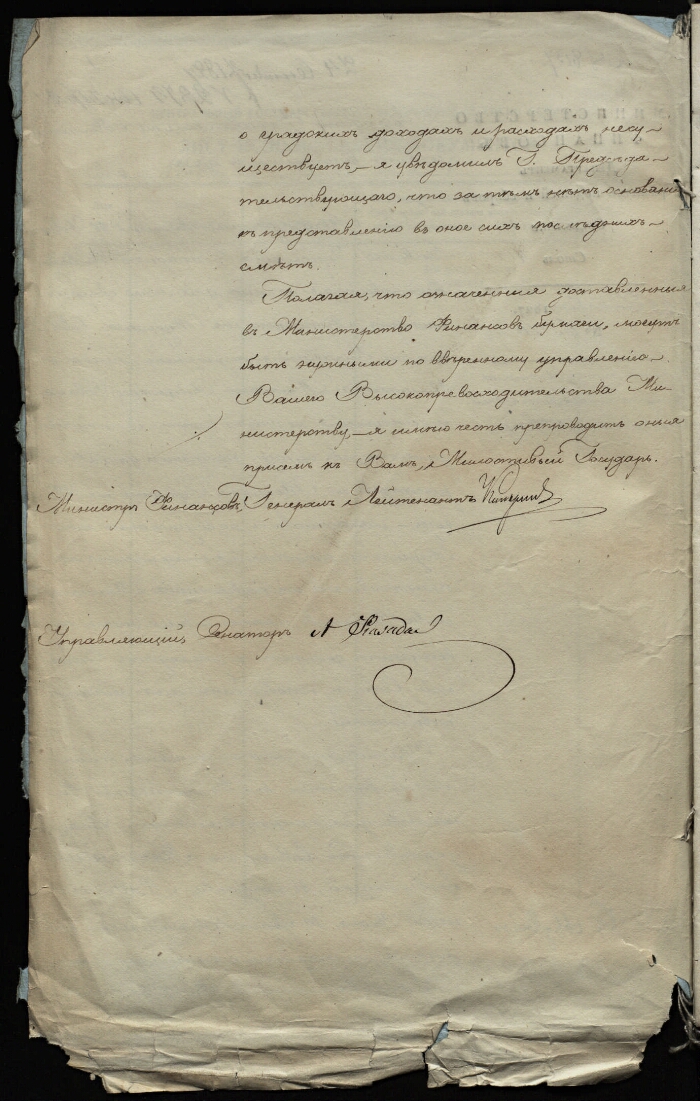 о градскихъ доходахъ и расходахъ несу-
ществуетъ, - я увѣдомилъ Г. Предсѣда-
тельствующаго, что за тѣмъ нѣтъ основанія
къ представленію въ оное сихъ послѣднихъ
смѣтъ.
Полагая, что означенныя доставленныя
въ Министерство Финансовъ бумаги, могутъ
быть нужными по ввѣренному управленію
Вашего Высокопревосходительства Ми-
нистерству, - я имѣю честь препроводить оныя
присемъ къ Вамъ, Милостивый Государь.
Министръ Финансовъ, Генералъ Лейтенантъ
Управляющій, Сенаторъ А